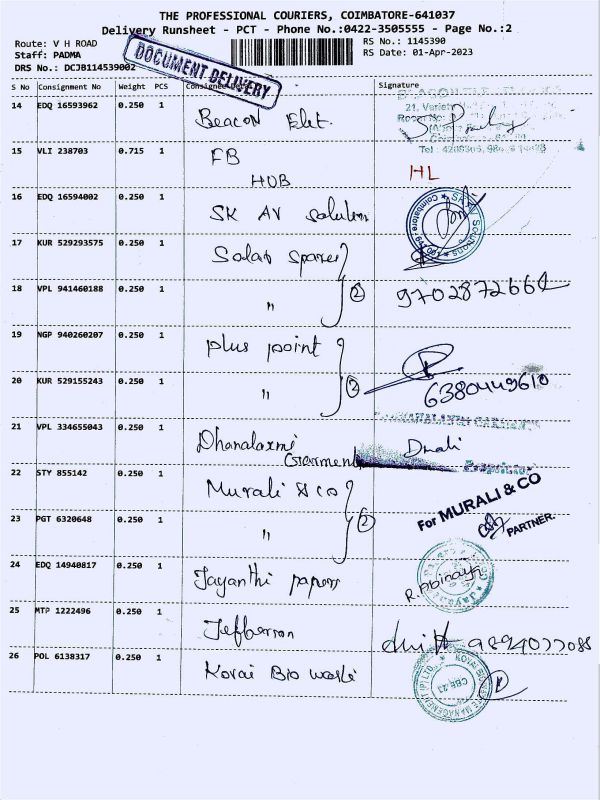 THE PROFESSIONAL COURIERS, COIMBATORE-641037
Delivery Runsheet - PCT - Phone No.:0422-3505555 - Page No.:2
Route: V H ROAD RS No.: 1145390
Staff: PADMA RS Date: 01-Apr-2023
DRS No.: DCJB114539002
DOCUMENT DELIVERY
S No Consignment No Weight PCS Signature
14 EDQ 16593962 0.250 1 Beacon Elet.
21, Variety
15 VLI 238703 0.715 1 FB
HUB HL
16 EDQ 16594002 0.250 1 SK AV solution
17 KUR 529293575 0.250 1 Solar spares
18 VPL 941460188 0.250 1 " 2 9702872661
19 NGP 940260207 0.250 1 plus point
20 KUR 529155243 0.250 1 " 2 6380449610
21 VPL 334655043 0.250 1 Dhanalaxmi
Garment
22 STY 855142 0.250 1 Murali & co For MURALI & CO
23 PGT 6320648 0.250 1 " 2 PARTNER.
24 EDQ 14940817 0.250 1 Jayanthi papers R. Abinaya
25 MTP 1222496 0.250 1 Jefferson 9894077085
26 POL 6138317 0.250 1 Kovai Bio waste